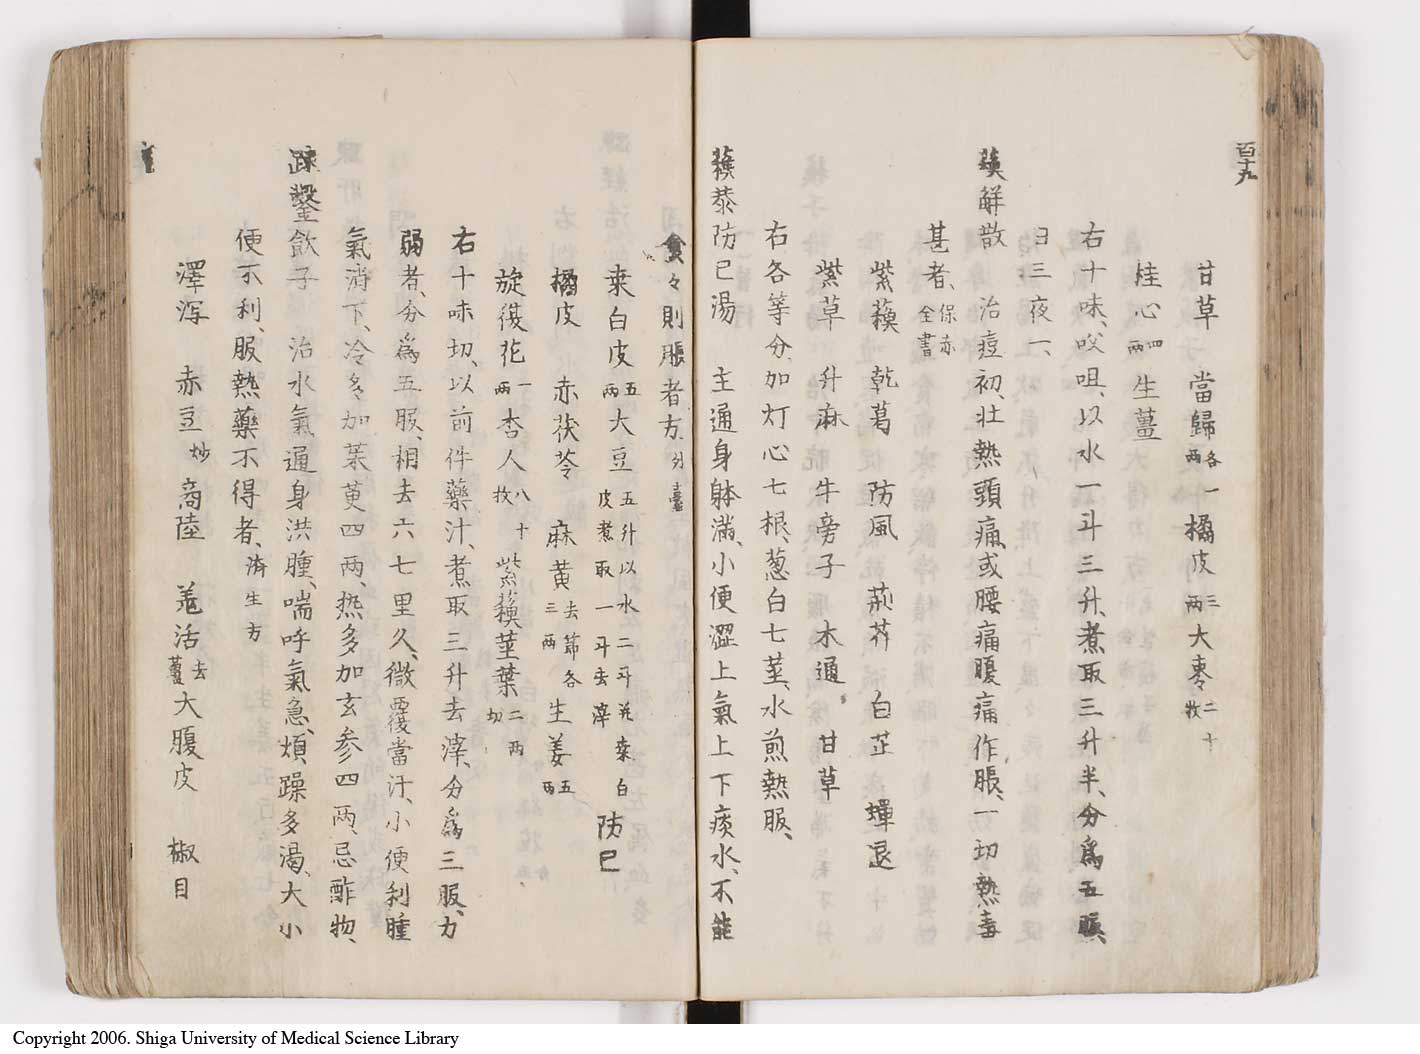 百十九
甘草 當歸各一兩 橘皮三兩 大棗二十枚
桂心四兩 生薑
右十味、㕮咀、以水一斗三升、煮取三升半、分為五服、
日三夜一、
蘓解散 治痘初、壮熱頭痛、或腰痛腹痛作脹、一切熱毒
甚者、保赤全書
紫蘓 乾葛 防風 荊芥 白芷 蟬退
紫草 升麻 牛旁子 木通 甘草
右各等分、加灯心七根、葱白七茎、水煎熱服、
蘓恭防已湯 主通身躰滿、小便澀上氣上下痰水、不能
食々則脹者方、外臺
桒白皮五兩 大豆五升以水二斗并桒白皮煮取一斗去滓 防已
橘皮 赤茯苓 麻黄去節各三兩 生姜五兩
旋復花一兩 杏人八十枚 紫蘓茎葉二兩切
右十味切、以前件藥汁、煮取三升去滓、分為三服、力
弱者、分為五服、相去六七里久、微覆當汗、小便利腫
氣消下、冷多加茱萸四兩、热多加玄参四兩、忌酢物、
踈鑿飲子 治水氣通身洪腫、喘呼氣急、煩躁多渴、大小
便不利、服熱藥不得者、済生方
澤泻 赤豆炒 商陸 羗活去蘆 大腹皮 椒目